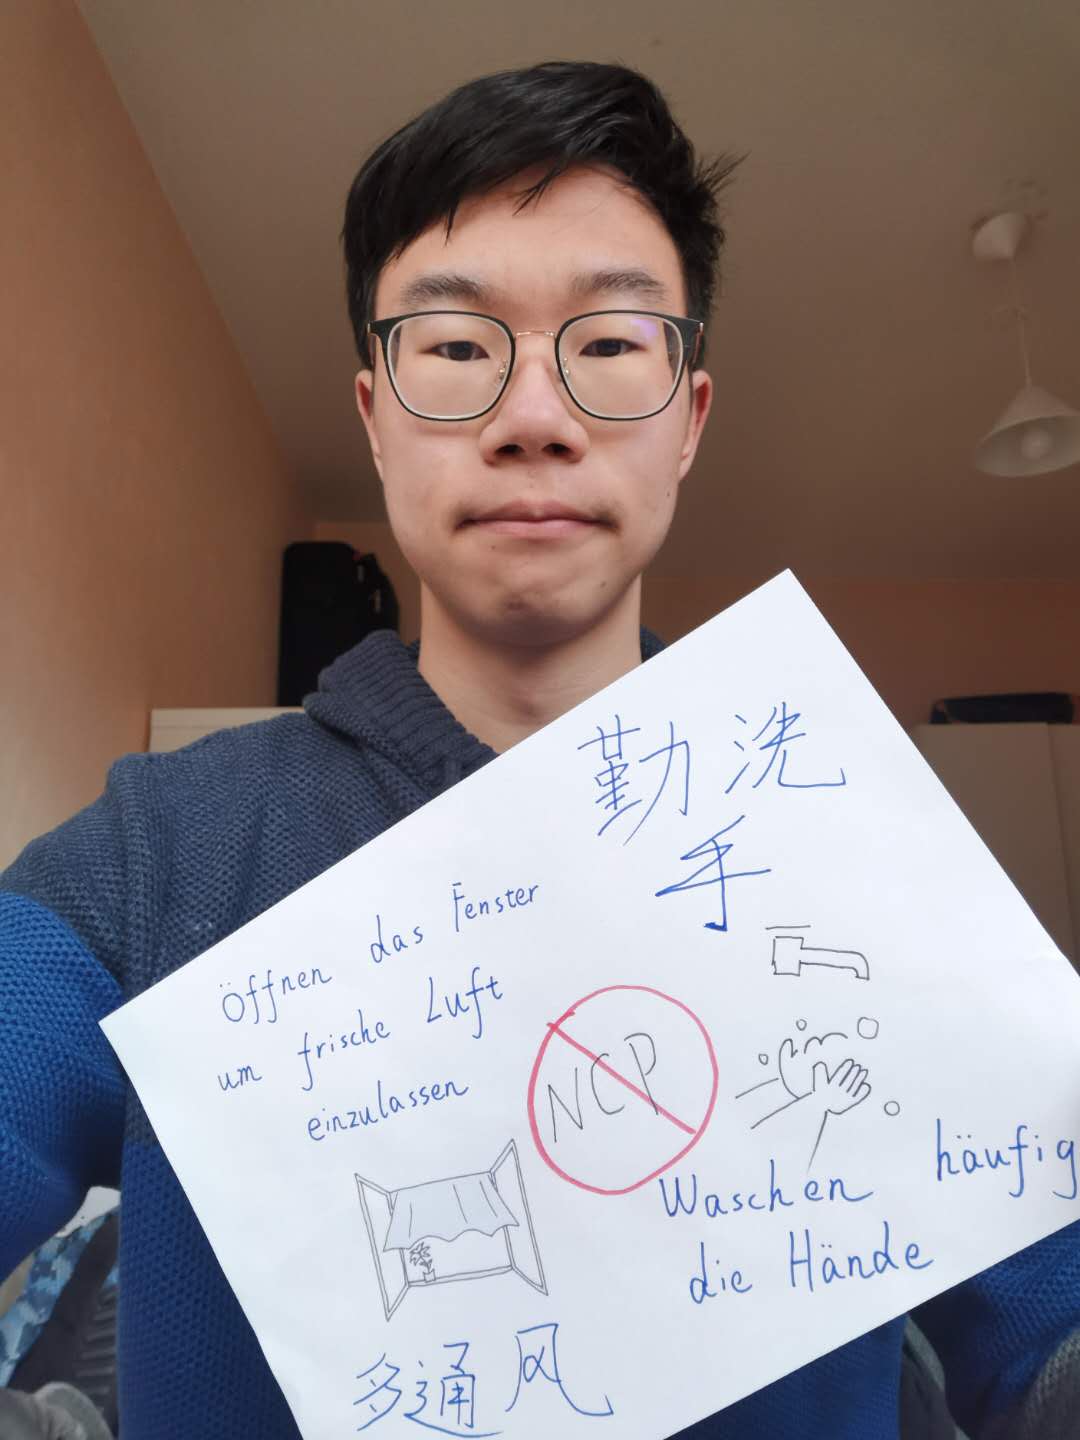 勤洗
手
Öffnen das Fenster
um frische Luft
einzulassen
NCP
Waschen häufig
die Hände
多通风